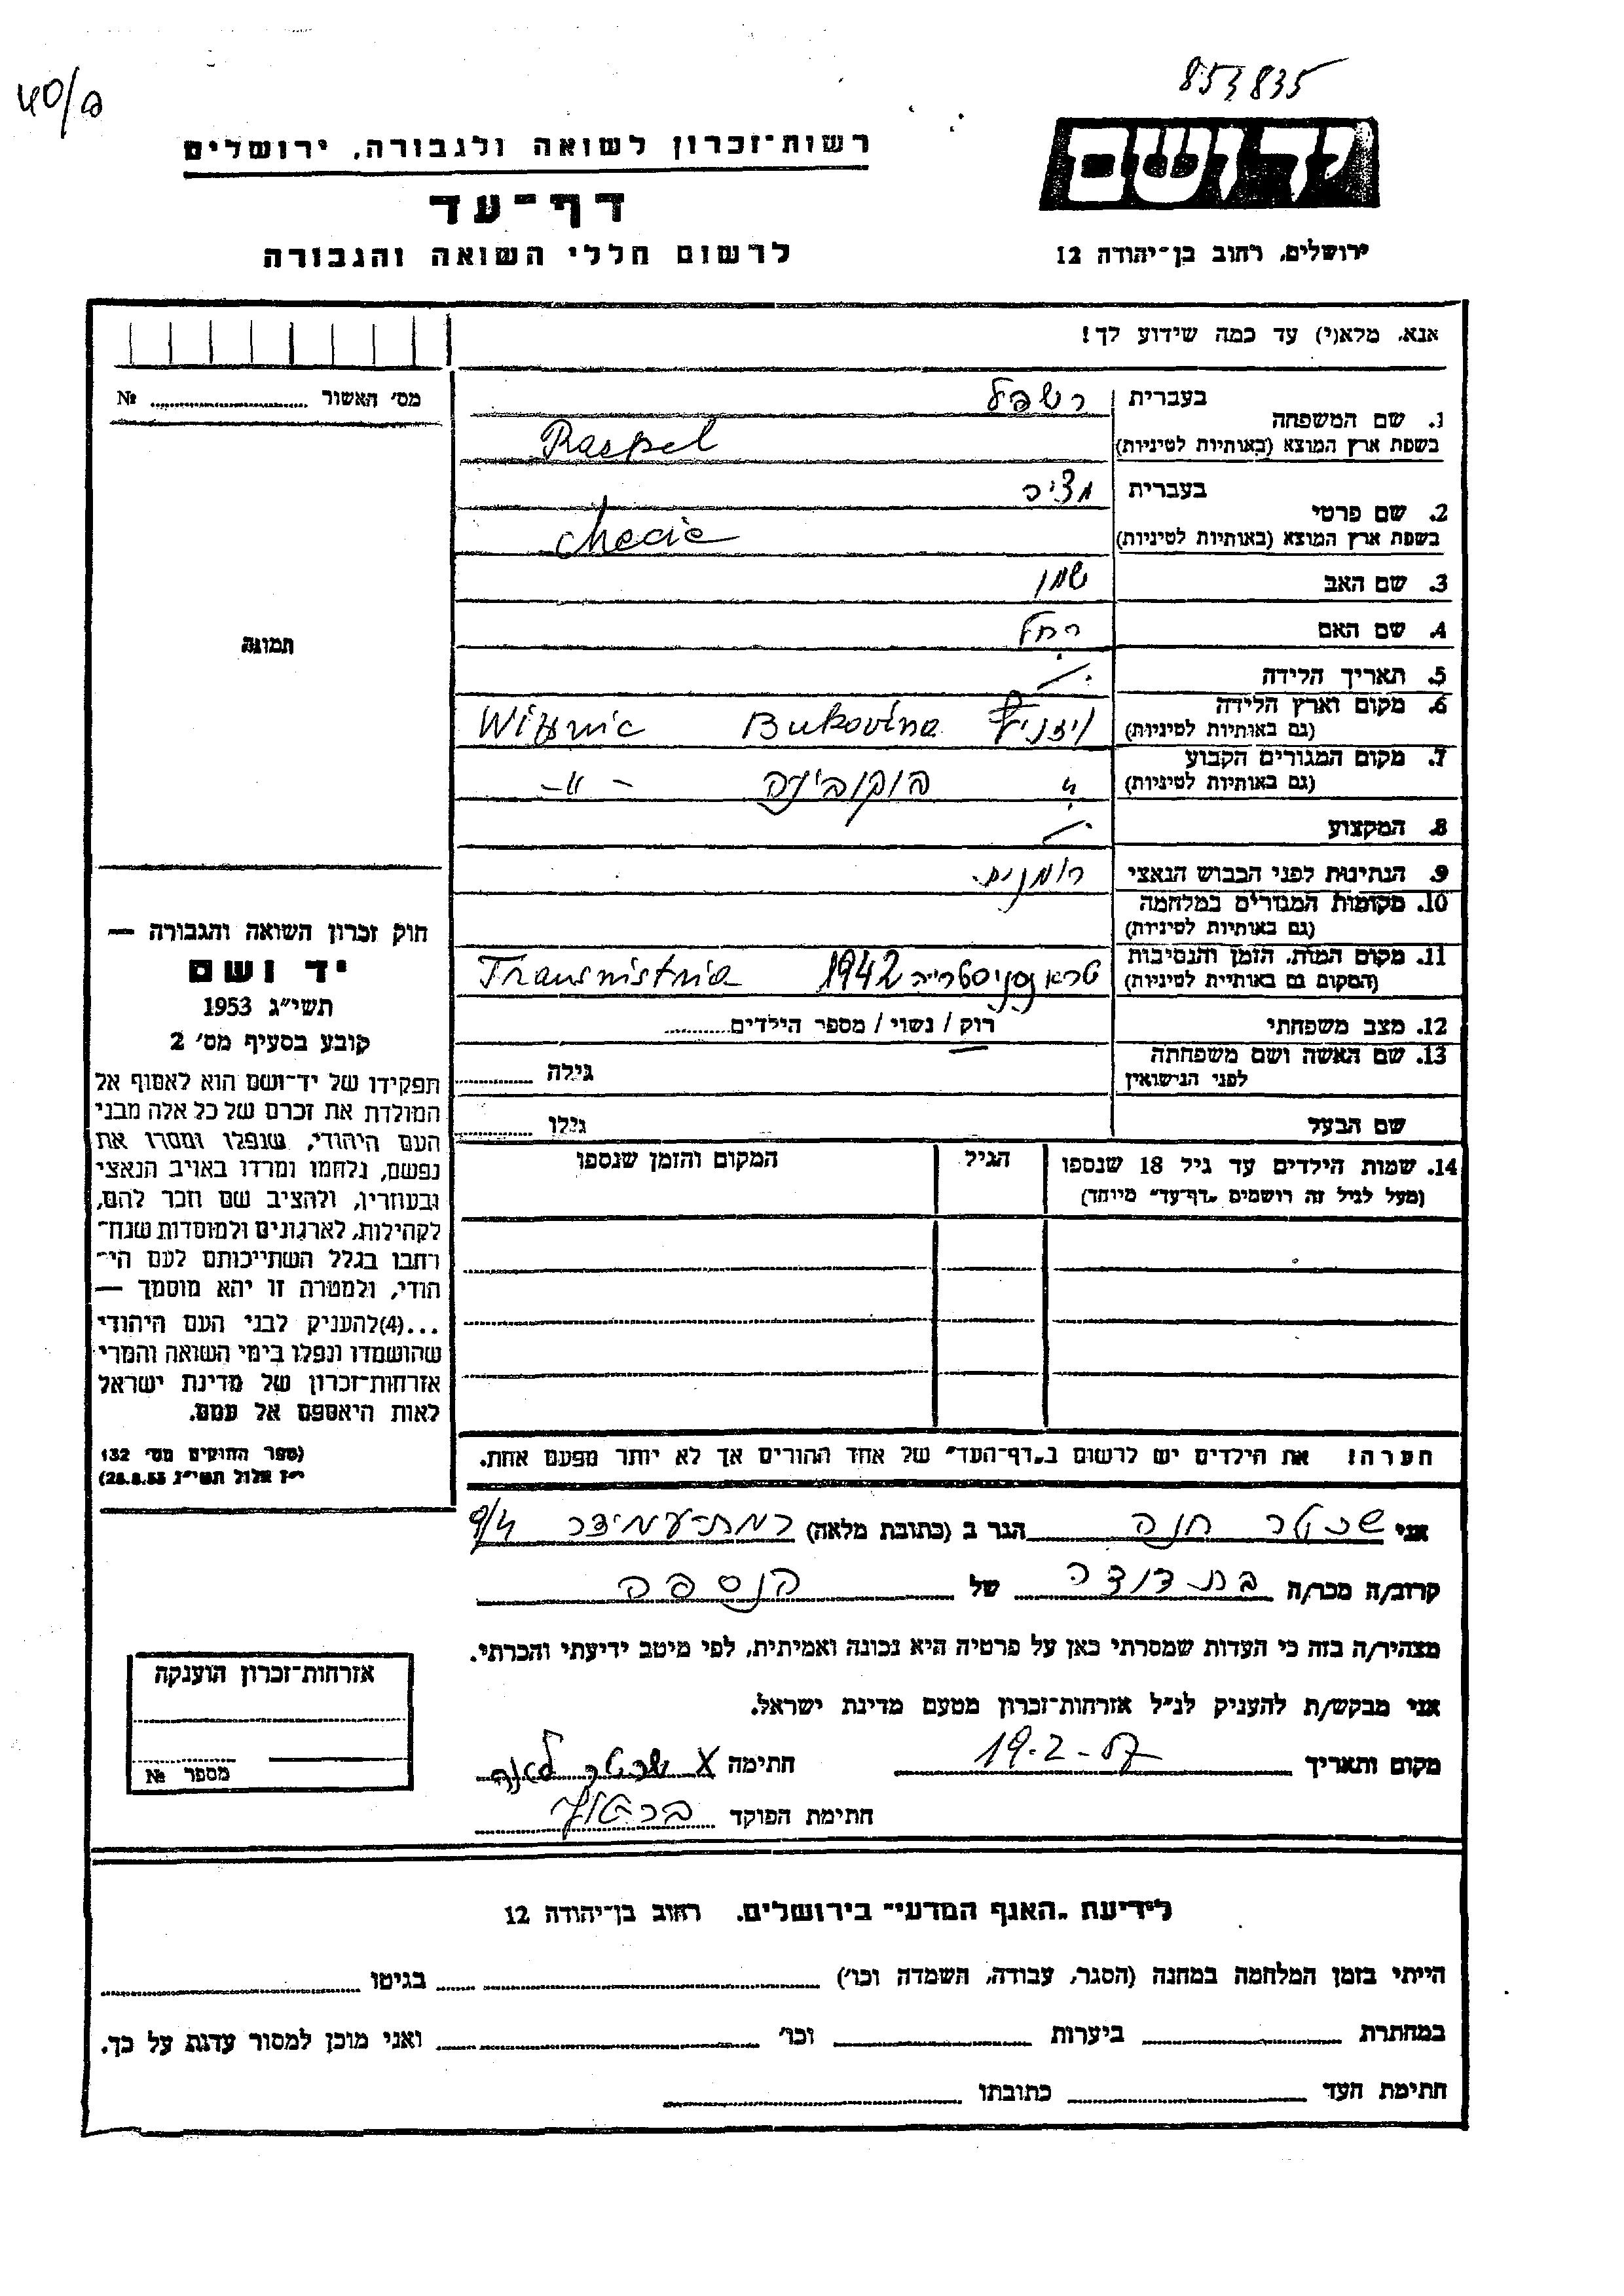 853835
40/a
יד ושם
ירושלים, רחוב בן־יהודה 12
רשות־זכרון לשואה ולגבורה, ירושלים
דף־עד
לרשום חללי השואה והגבורה
אנא, מלא(י) עד כמה שידוע לך!
מס׳ האשור № 
1. שם המשפחה
בעברית רשפל
בשפת ארץ המוצא (באותיות לטיניות) Raspel
2. שם פרטי
בעברית מציה
בשפת ארץ המוצא (באותיות לטיניות)
3. שם האב שמן
4. שם האם רחל
5. תאריך הלידה
6. מקום וארץ הלידה
(גם באותיות לטיניות) ויזניץ Bukovina Wiznic
7. מקום המגורים הקבוע
(גם באותיות לטיניות) " בוקובינה - " -
8. המקצוע
9. הנתינות לפני הכבוש הנאצי רומנית
10. מקומות המגורים במלחמה
(גם באותיות לטיניות)
11. מקום המות, הזמן והנסיבות
(המקום גם באותיות לטיניות) טראנסניסטריה 1942 Transnistria
12. מצב משפחתי רוק / נשוי / מספר הילדים
13. שם האשה ושם משפחתה
לפני הנישואין גילה
שם הבעל גילו
14. שמות הילדים עד גיל 18 שנספו הגיל המקום והזמן שנספו
(מעל לגיל זה רושמים „דף־עד" מיוחד)
הערה! את הילדים יש לרשום ב„דף־העד" של אחד ההורים אך לא יותר מפעם אחת.
תמונה
חוק זכרון השואה והגבורה —
יד ושם
תשי״ג 1953
קובע בסעיף מס׳ 2
תפקידו של יד־ושם הוא לאסוף אל
המולדת את זכרם של כל אלה מבני
העם היהודי, שנפלו ומסרו את
נפשם, נלחמו ומרדו באויב הנאצי
ובעוזריו, ולהציב שם וזכר להם,
לקהילות, לארגונים ולמוסדות שנח־
רבו בגלל השתייכותם לעם הי־
הודי, ולמטרה זו יהא מוסמך —
...(4)להעניק לבני העם היהודי
שהושמדו ונפלו בימי השואה והמרי
אזרחות־זכרון של מדינת ישראל
לאות היאספם אל עמם.
(ספר החוקים מס׳ 132
י״ז אלול תשי״ג 28.8.53)
אני שכטר חנה הגר ב (כתובת מלאה) רמת־עמידר
קרוב/ה מכר/ה בת דודה של הנספה
מצהיר/ה בזה כי העדות שמסרתי כאן על פרטיה היא נכונה ואמיתית, לפי מיטב ידיעתי והכרתי.
אני מבקש/ת להעניק לנ״ל אזרחות־זכרון מטעם מדינת ישראל.
מקום ותאריך 19-2-57 חתימה x שכטר חנה
חתימת הפוקד
אזרחות־זכרון הוענקה
מספר №
לידיעת „האגף המדעי" בירושלים, רחוב בן־יהודה 12
הייתי בזמן המלחמה במחנה (הסגר, עבודה, השמדה וכו׳) בגיטו
במחתרת ביערות וכו׳ ואני מוכן למסור עדות על כך.
חתימת העד כתובתו